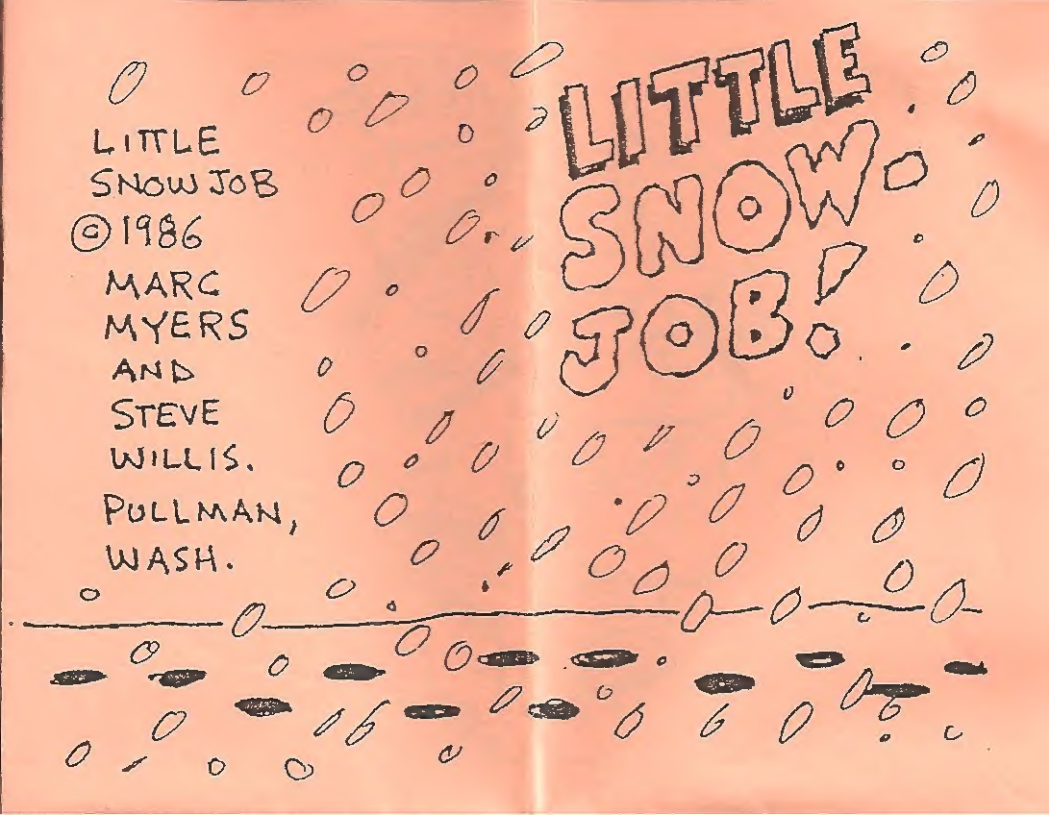 LITTLE
SNOW JOB
© 1986
MARC
MYERS
AND
STEVE
WILLIS.
PULLMAN,
WASH.
LITTLE
SNOW
JOB!